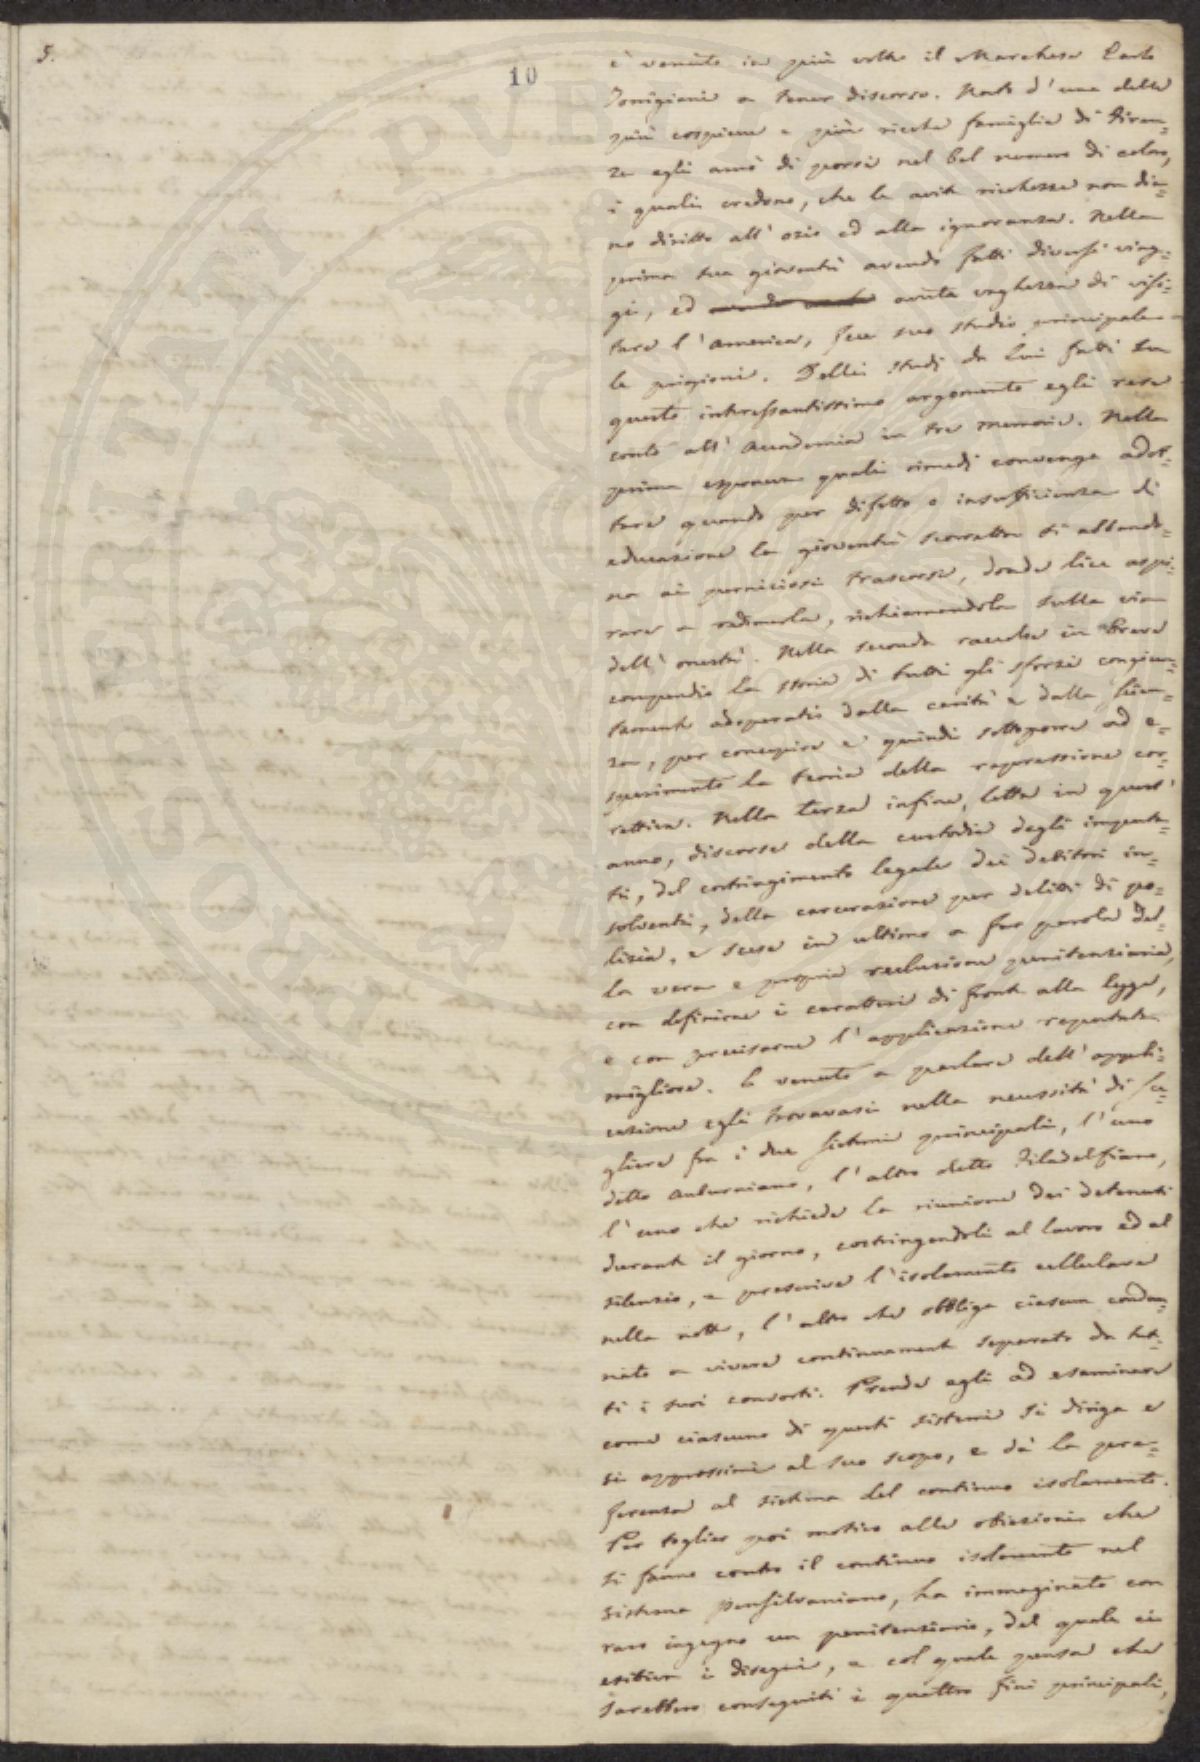 5.
10
è venuto in più volte il Marchese Carlo
Torrigiani a tener discorso. Nato d'una delle
più cospicue e più ricche famiglie di Firen=
ze egli amò di porsi nel bel numero di coloro,
i quali credono, che le avite ricchezze non dia=
no diritto all'ozio ed alla ignoranza. Nella
prima sua gioventù avendo fatti diversi viag=
gi, ed avuta vaghezza di visi=
tare l'America, fece suo studio principale
le prigioni. Delli studj da lui fatti su
questo interessantissimo argomento egli rese
conto all'Accademia in tre memorie. Nella
prima esponeva quali rimedj convenga adot=
tare quando per difetto o insufficienza di
educazione la gioventù scorretta si abbando=
na ai perniciosi trascorsi, donde lice aspi=
rare a redimerla, richiamandola sulla via
dell'onestà. Nella seconda raccolse in breve
compendio la storia di tutti gli sforzi congiun=
tamente adoperati dalla carità e dalla scien=
za, per concepire e quindi sottoporre ad e=
sperimento la teoria della repressione cor=
rettiva. Nella terza infine, letta in quest'
anno, discorse della custodia degli imputa=
ti, del costringimento legale dei debitori in=
solventi, della carcerazione per delitti di po=
lizia, e scese in ultimo a far parola del=
la vera e propria reclusione penitenziaria,
con definirne i caratteri di fronte alla legge,
e con precisarne l'applicazione reputata
migliore. E venuto a parlare dell'appli=
cazione egli trovavasi nella necessità di sce=
gliere fra i due sistemi principali, l'uno
detto Auburniano, l'altro detto Filadelfiano,
l'uno che richiede la riunione dei detenuti
durante il giorno, costringendoli al lavoro ed al
silenzio, e prescrive l'isolamento cellulare
nella notte, l'altro che obbliga ciascun condan=
nato a vivere continuamente separato da tut=
ti i suoi consorti. Prende egli ad esaminare
come ciascuno di questi sistemi si diriga e
si approssimi al suo scopo, e dà la pre=
ferenza al sistema del continuo isolamento.
Per toglier poi motivo alle obiezioni che
si fanno contro il continuo isolamento nel
sistema pensilvaniano, ha immaginato con
raro ingegno un penitenziario, del quale ci
esibiva i disegni, e col quale pensa che
sarebbero conseguiti i quattro fini principali,